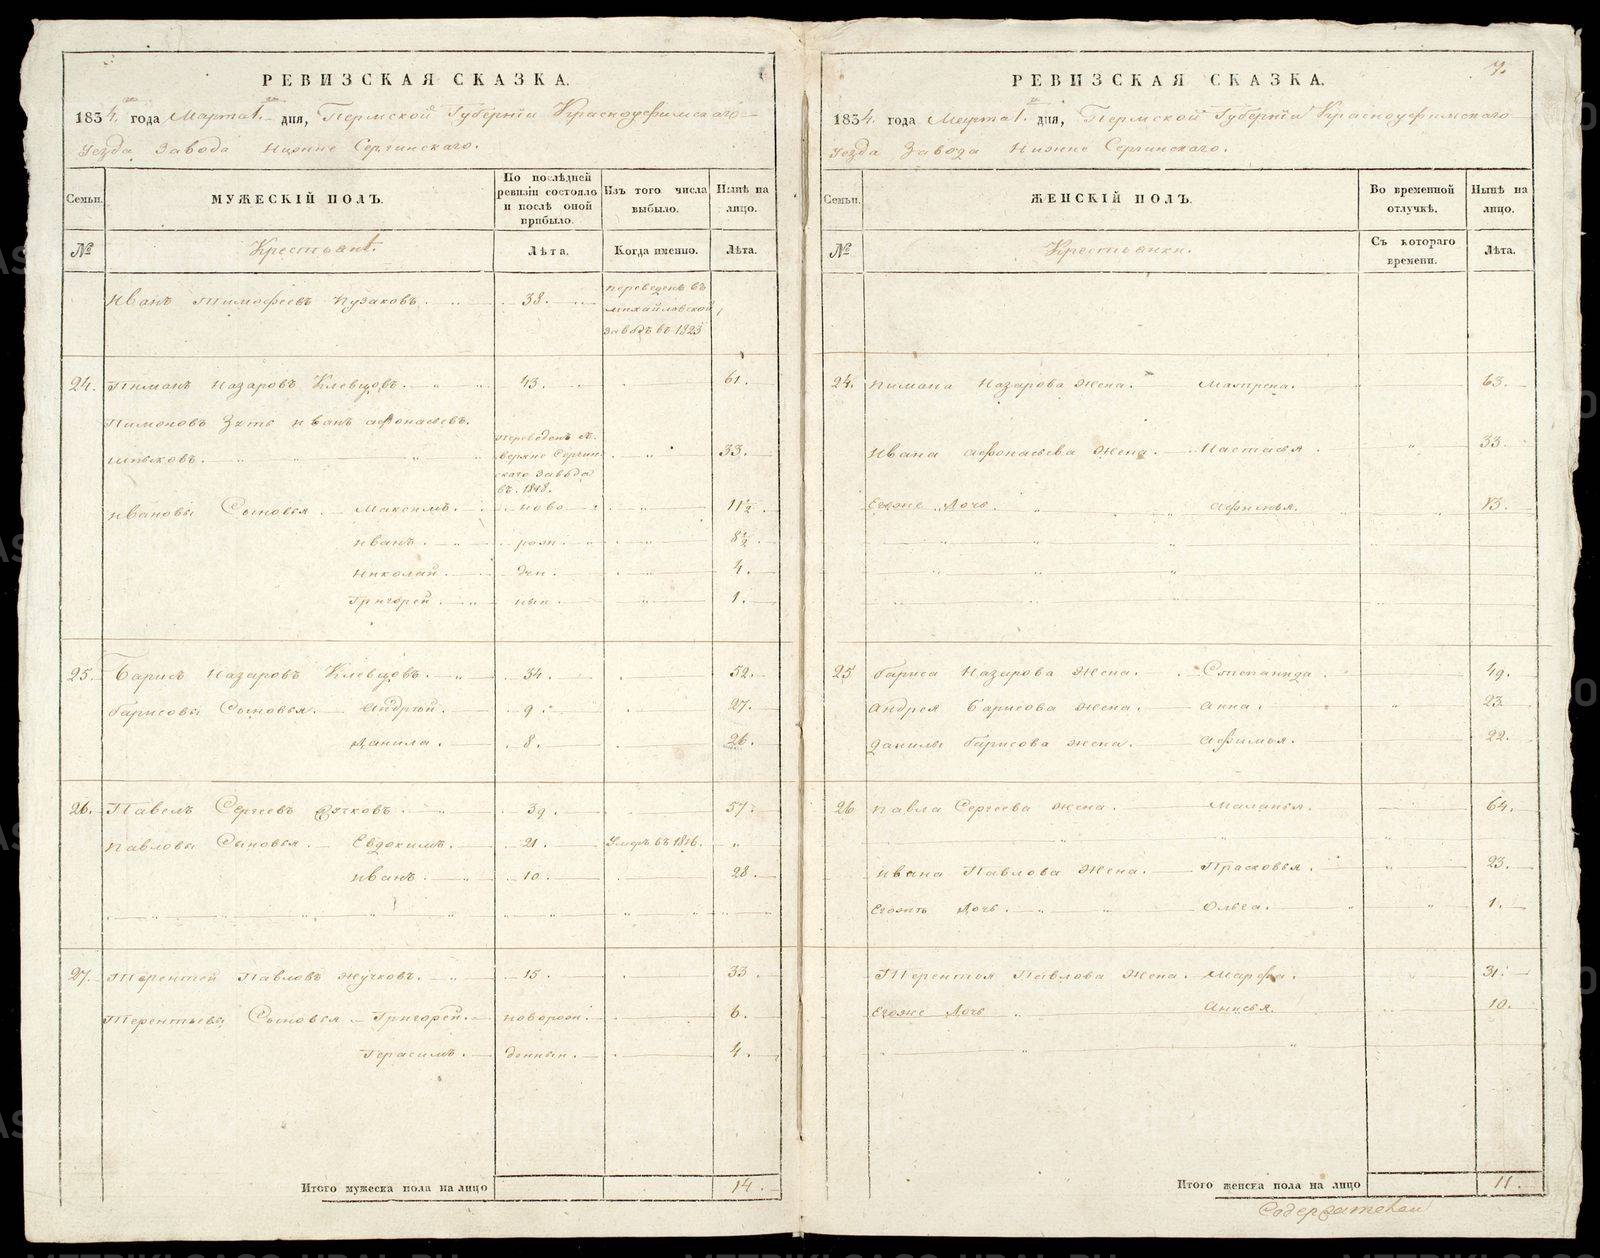 РЕВИЗСКАЯ СКАЗКА.
1834. года Марта 1. дня, Пермской Губернiи Красноуфимскаго
Уезда Завода Нижне Сергинскаго.
Семьи.
МУЖЕСКIЙ ПОЛЪ.
По послѣдней ревизiи состояло и послѣ оной прибыло.
Изъ того числа выбыло.
Нынѣ на лицо.
№
Крестьянъ.
Лѣта.
Когда именно.
Лѣта.
Иванъ Тимофеевъ Пузаковъ. 38. переведенъ въ
Михайловской
заводъ въ 1823
24. Пиманъ Назаровъ Клевцовъ. 43. 61.
Пимоновъ Зять Иванъ Афонасьевъ
переведенъ въ 33.
Верхне Сергин
скаго Завода
въ 1818.
Ивановы Сыновья Максимъ. ново 11½
Иванъ. рож 8½
Николай. ден. 4.
Григорей. ныи. 1.
25. Барисъ Назаровъ Клевцовъ. 34. 52.
Барисовы Сыновья. Андрѣй. 9. 27.
Данила. 8. 26.
26. Павелъ Сергеевъ 39. 57.
Павловы Сыновья. Евдокимъ. 21. Умеръ въ 1816.
Иванъ. 10. 28.
27. Терентей Павловъ Жучковъ. 15. 33.
Терентьевы Сыновья Григорей. новорож. 6.
Герасимъ. денныи. 4.
Итого мужеска пола на лицо 14.
7.
РЕВИЗСКАЯ СКАЗКА.
1834. года Марта 1. дня, Пермской Губернiи Красноуфимскаго
Уезда Завода Нижне Сергинскаго.
Семьи.
ЖЕНСКIЙ ПОЛЪ.
Во временной отлучкѣ.
Нынѣ на лицо.
№
Крестьянки.
Съ котораго времени.
Лѣта.
24. Пимана Назарова жена. Матрена. 63.
Ивана Афонасьева жена. Настасья. 33.
Егоже Дочь. Афимья. 13.
25 Бариса Назарова жена. Степанида. 49.
Андрея Барисова жена. Анна. 23.
Данилы Барисова жена. Афимья. 22.
26 Павла Сергеева жена. Маланья. 64.
Ивана Павлова жена. Прасковья. 23.
Егожъ Дочь. Ольга. 1.
Терентья Павлова жена. Марфа. 31.
Егоже Дочь Анисья. 10.
Итого женска пола на лицо 11.
Содержателей